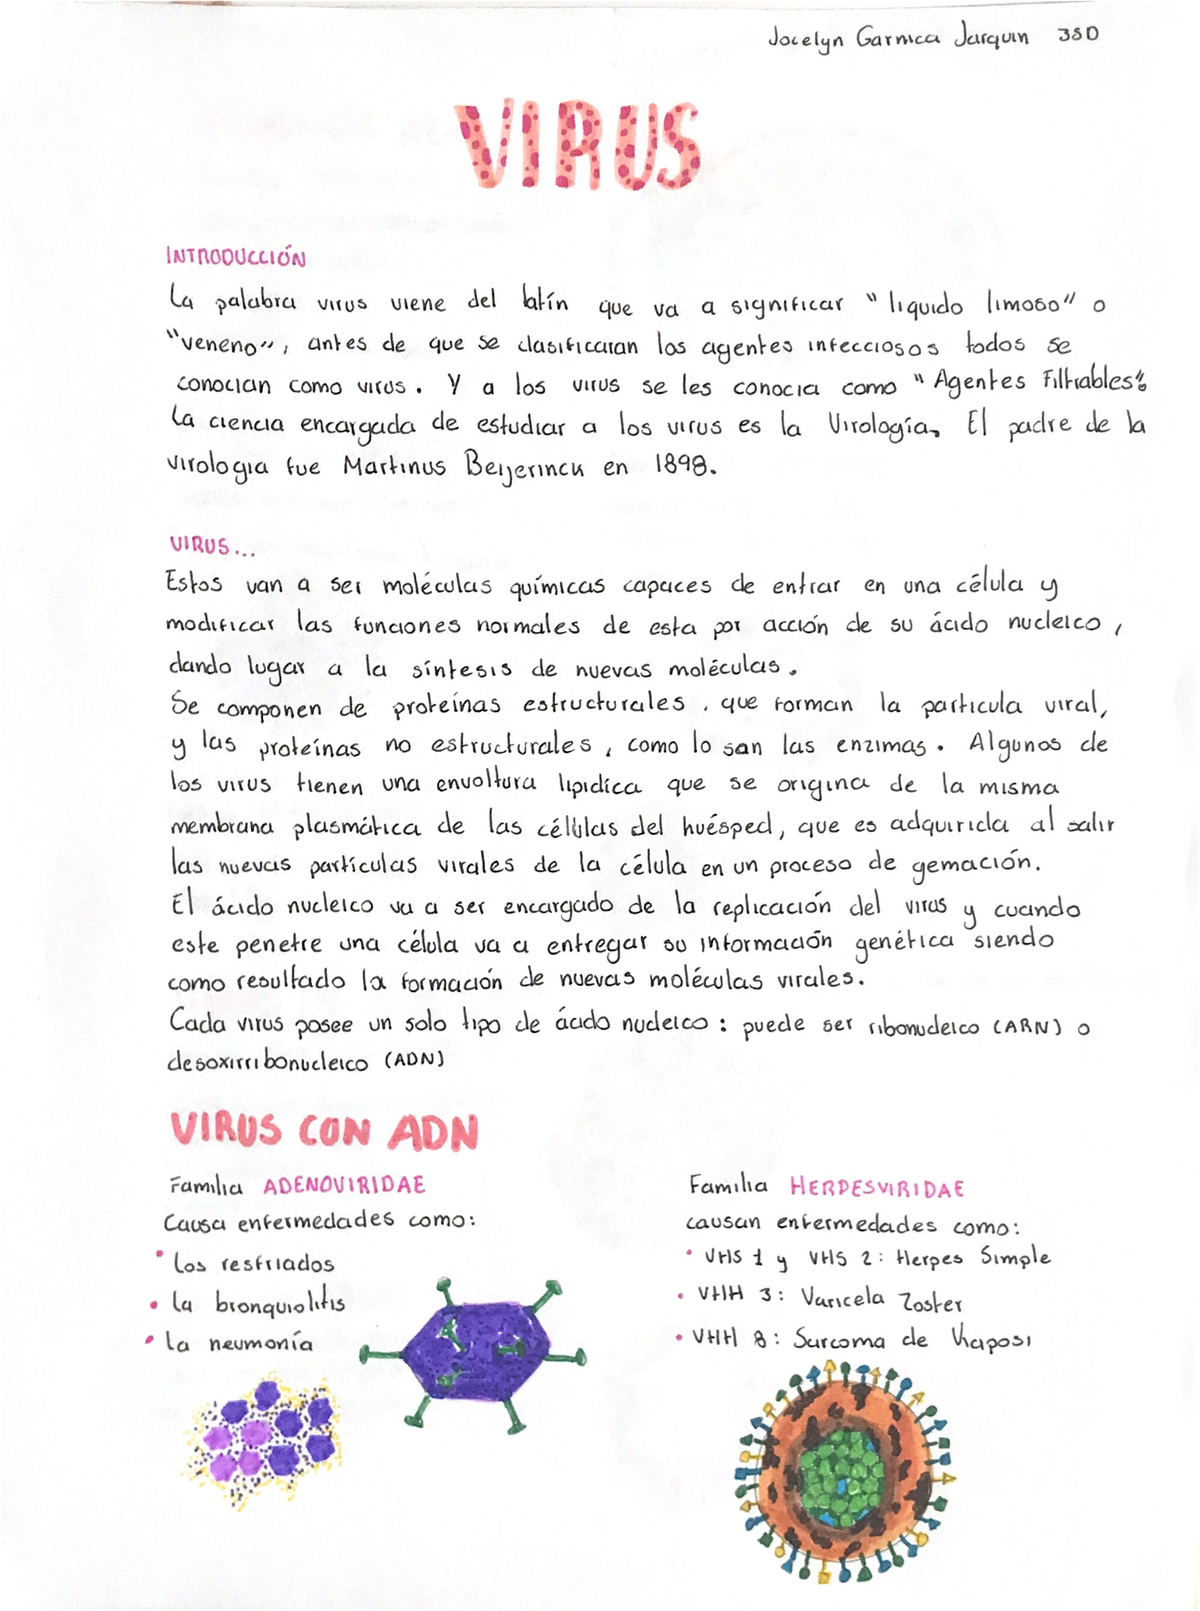 Jocelyn Garnica Jarquin 3SD
VIRUS
INTRODUCCIÓN
La palabra virus viene del latín que va a significar "liquido limoso" o
"veneno", antes de que se clasificaran los agentes infecciosos todos se
conocian como virus. Y a los virus se les conocia como "Agentes Filtrables".
La ciencia encargada de estudiar a los virus es la Virología, El padre de la
virologia fue Martinus Beijerinck en 1898.
VIRUS...
Estos van a ser moléculas químicas capaces de entrar en una célula y
modificar las funciones normales de esta por acción de su ácido nucleico,
dando lugar a la síntesis de nuevas moléculas.
Se componen de proteínas estructurales, que forman la particula viral,
y las proteínas no estructurales, como lo son las enzimas. Algunos de
los virus tienen una envoltura lipidíca que se origina de la misma
membrana plasmática de las células del huésped, que es adquirida al salir
las nuevas partículas virales de la célula en un proceso de gemación.
El ácido nucleico va a ser encargado de la replicación del virus y cuando
este penetre una célula va a entregar su información genética siendo
como resultado la formación de nuevas moléculas virales.
Cada virus posee un solo tipo de ácido nucleico: puede ser ribonucleico (ARN) o
desoxirribonucleico (ADN)
VIRUS CON ADN
Familia ADENOVIRIDAE
Causa enfermedades como:
• Los resfriados
• La bronquiolitis
• La neumonía
Familia HERPESVIRIDAE
causan enfermedades como:
• VHS 1 y VHS 2: Herpes Simple
• VHH 3: Varicela Zoster
• VHH 8: Sarcoma de Kaposi